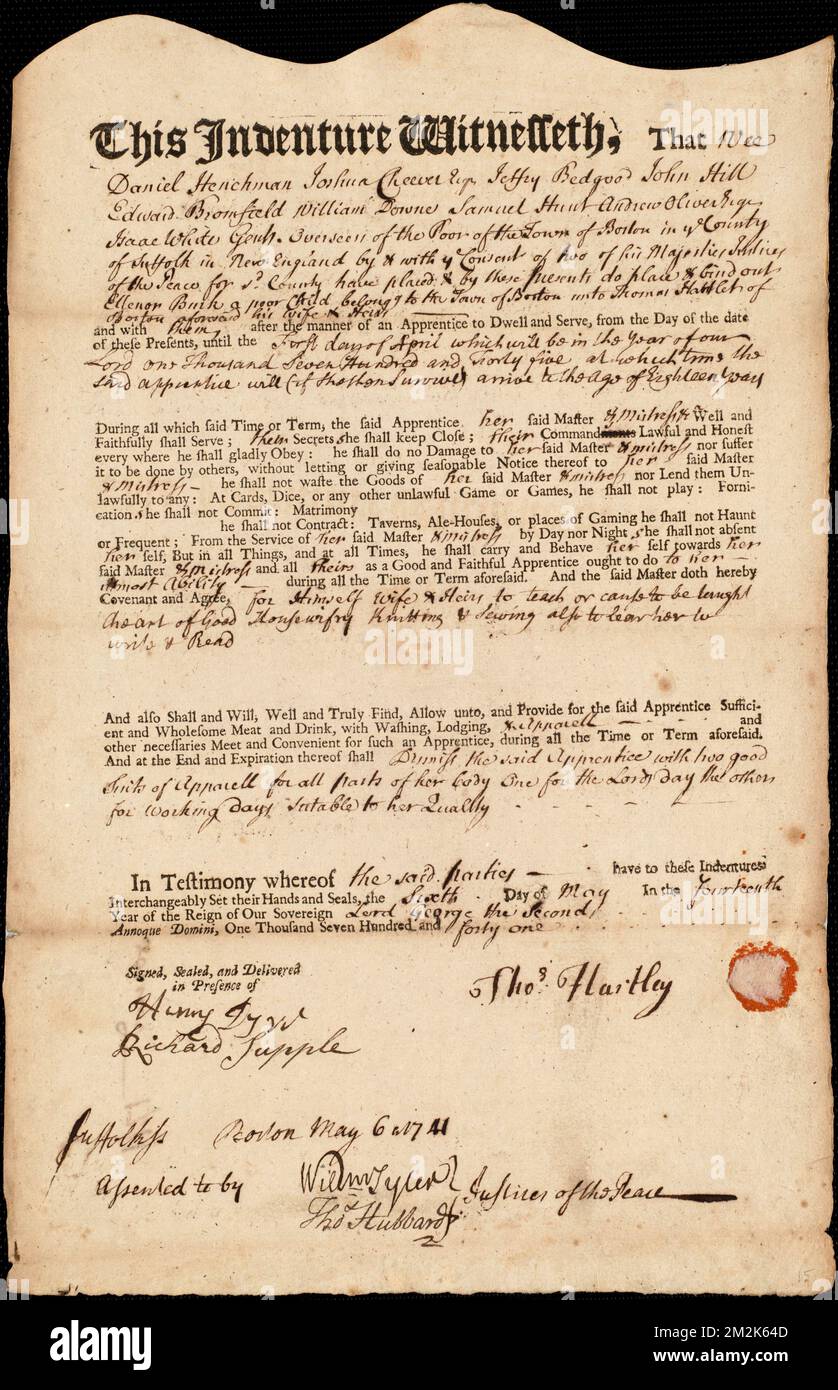 This Indenture Witnesseth, That Wee
Daniel Henchman Joshua Cheever Esqr Jeffry Bedgood John Hill
Edward Bromfield William Downe Samuel Hunt Andrew Oliver Esqr
Isaac White Gentn. Overseers of the Poor of the Town of Boston in ye County
of Suffolk in New England by & with ye Consent of two of his Majesties Justices
of the Peace for sd. County have placed & by these Presents do place & bind out
Ellenor Buck a poor Child belongg to the Town of Boston unto Thomas Hartley of
Boston aforesd his wife & Heirs
and with them after the manner of an Apprentice to Dwell and Serve, from the Day of the date
of these Presents, until the First day of April which will be in the Year of our
Lord one Thousand Seven Hundred and Forty five at which time the
said apprentice will (if she then Survive) arrive to the Age of Eighteen Years
During all which said Time or Term, the said Apprentice her said Master & Mistress Well and
Faithfully shall Serve; their Secrets she shall keep Close; their Commandments Lawful and Honest
every where he shall gladly Obey: he shall do no Damage to her said Master & mistress nor suffer
it to be done by others, without letting or giving seasonable Notice thereof to her said Master
& Mistress — he shall not waste the Goods of her said Master & mistress nor Lend them Un-
lawfully to any: At Cards, Dice, or any other unlawful Game or Games, he shall not play: Forni-
cation she shall not Commit: Matrimony
he shall not Contract: Taverns, Ale-Houses, or places of Gaming he shall not Haunt
or Frequent; From the Service of her said Master & mistress by Day nor Night she shall not absent
her self, But in all Things, and at all Times, he shall carry and Behave her self towards her
said Master & Mistress and all theirs as a Good and Faithful Apprentice ought to do to her —
utmost Ability — during all the Time or Term aforesaid. And the said Master doth hereby
Covenant and Agree, for Himself Wife & Heirs to teach or cause to be taught
the art of Good Housewifry Knitting & Sewing also to lear her to
write & Read
And also Shall and Will, Well and Truly Find, Allow unto, and Provide for the said Apprentice Suffici-
ent and Wholesome Meat and Drink, with Washing, Lodging, & Apparell — and
other necessaries Meet and Convenient for such an Apprentice, during all the Time or Term aforesaid.
And at the End and Expiration thereof shall Dismiss the said Apprentice with two good
Suits of Apparell for all parts of her body One for the Lords day the others
for Working Days Sutable to her Quality
In Testimony whereof the said parties — have to these Indentures
Interchangeably Set their Hands and Seals, the Sixth Day of May In the fourteenth
Year of the Reign of Our Sovereign Lord George the Second
Annoque Domini, One Thousand Seven Hundred and forty one
Signed, Sealed, and Delivered
in Presence of
Thos. Hartley
Richard Supple
Suffolk ss Boston May 6 1741
Assented to by Willm Tyler } Justices of the Peace
Tho Hubbard
15
alamy
Image ID: 2M2K64D
www.alamy.com